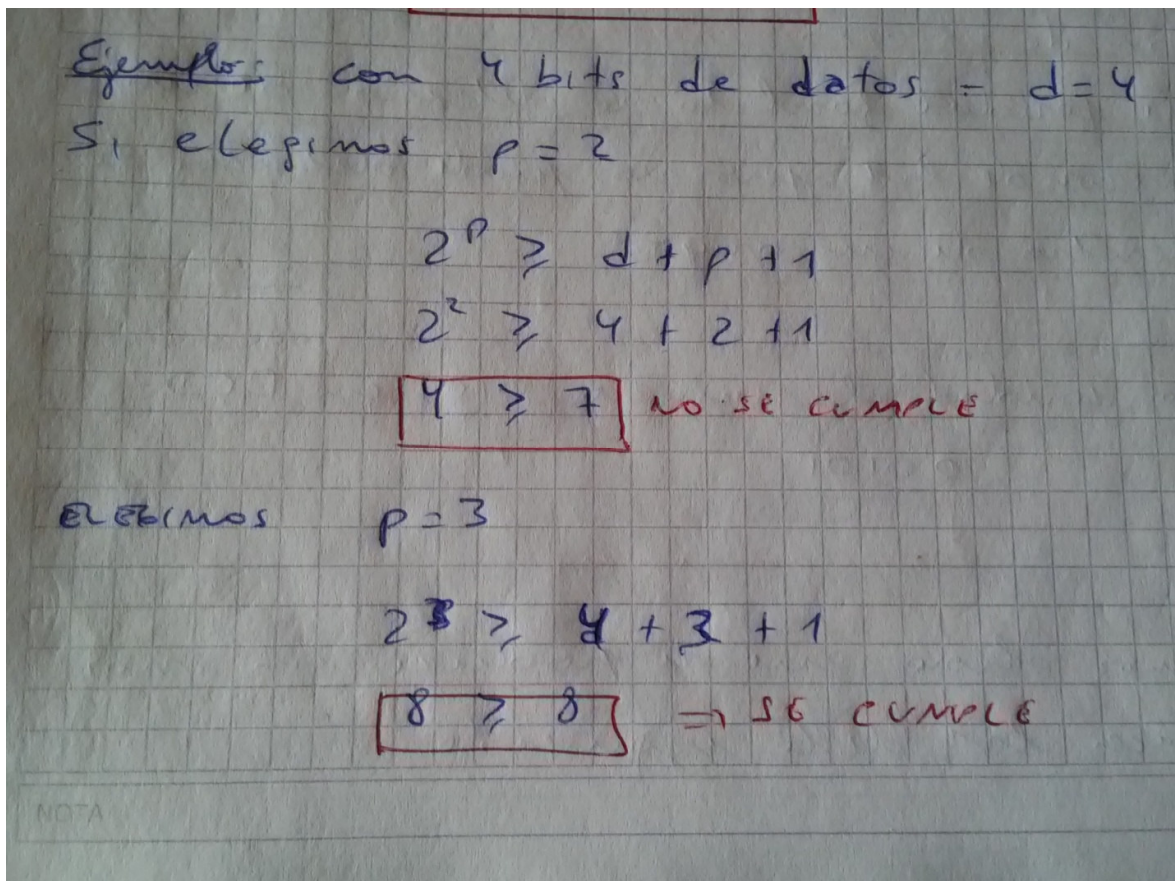 Ejemplos con 4 bits de datos = d=4
Si elegimos p=2
2^p ≥ d + p + 1
2² ≥ 4 + 2 + 1
4 ≥ 7 NO SE CUMPLE
ELEGIMOS p=3
2³ ≥ 4 + 3 + 1
8 ≥ 8 ⇒ SE CUMPLE
NOTA